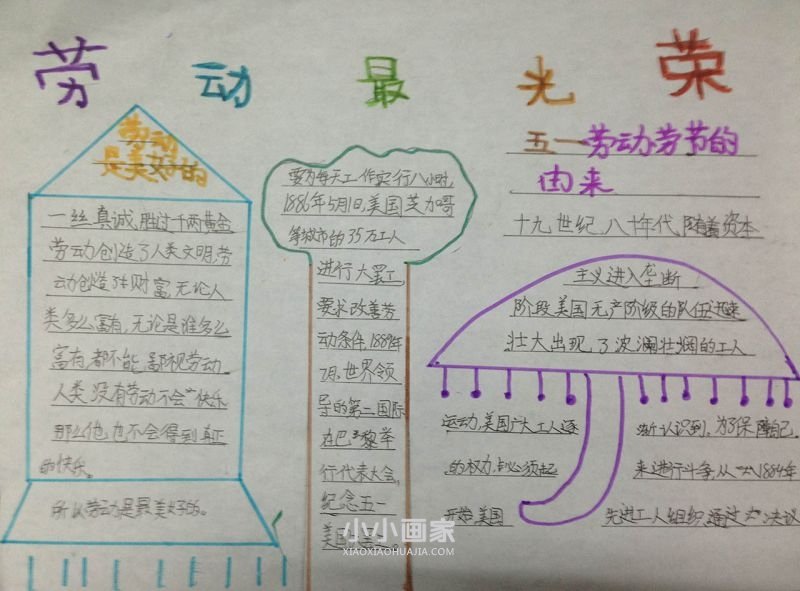 劳动最光荣
劳动
是美好的
一丝真诚,胜过千两黄金
劳动创造了人类文明,劳
动创造财富,无论人
类多么富有,无论是谁多么
富有,都不能鄙视劳动
人类,没有劳动不会快乐
那么他,也不会得到真正
的快乐。
所以劳动是最美好的。
要为每天工作实行八小时,
1886年5月1日,美国芝加哥
等城市的35万工人
进行大罢工,
要求改善劳
动条件,1889年
7月,世界领
导的第二国际
在巴黎举
行代表大会,
纪念五一
美国
五一劳动劳节的
由来
十九世纪,八十年代,随着资本
主义进入垄断
阶段美国无产阶级的队伍迅速
壮大出现,了波澜壮阔的工人
运动,美国广大工人逐
渐认识到,为了保障自己,
的权力,必须起
来进行斗争,从1884年
开始,美国
先进工人组织,通过决议
小小画家
XIAOXIAOHUAJIA.COM